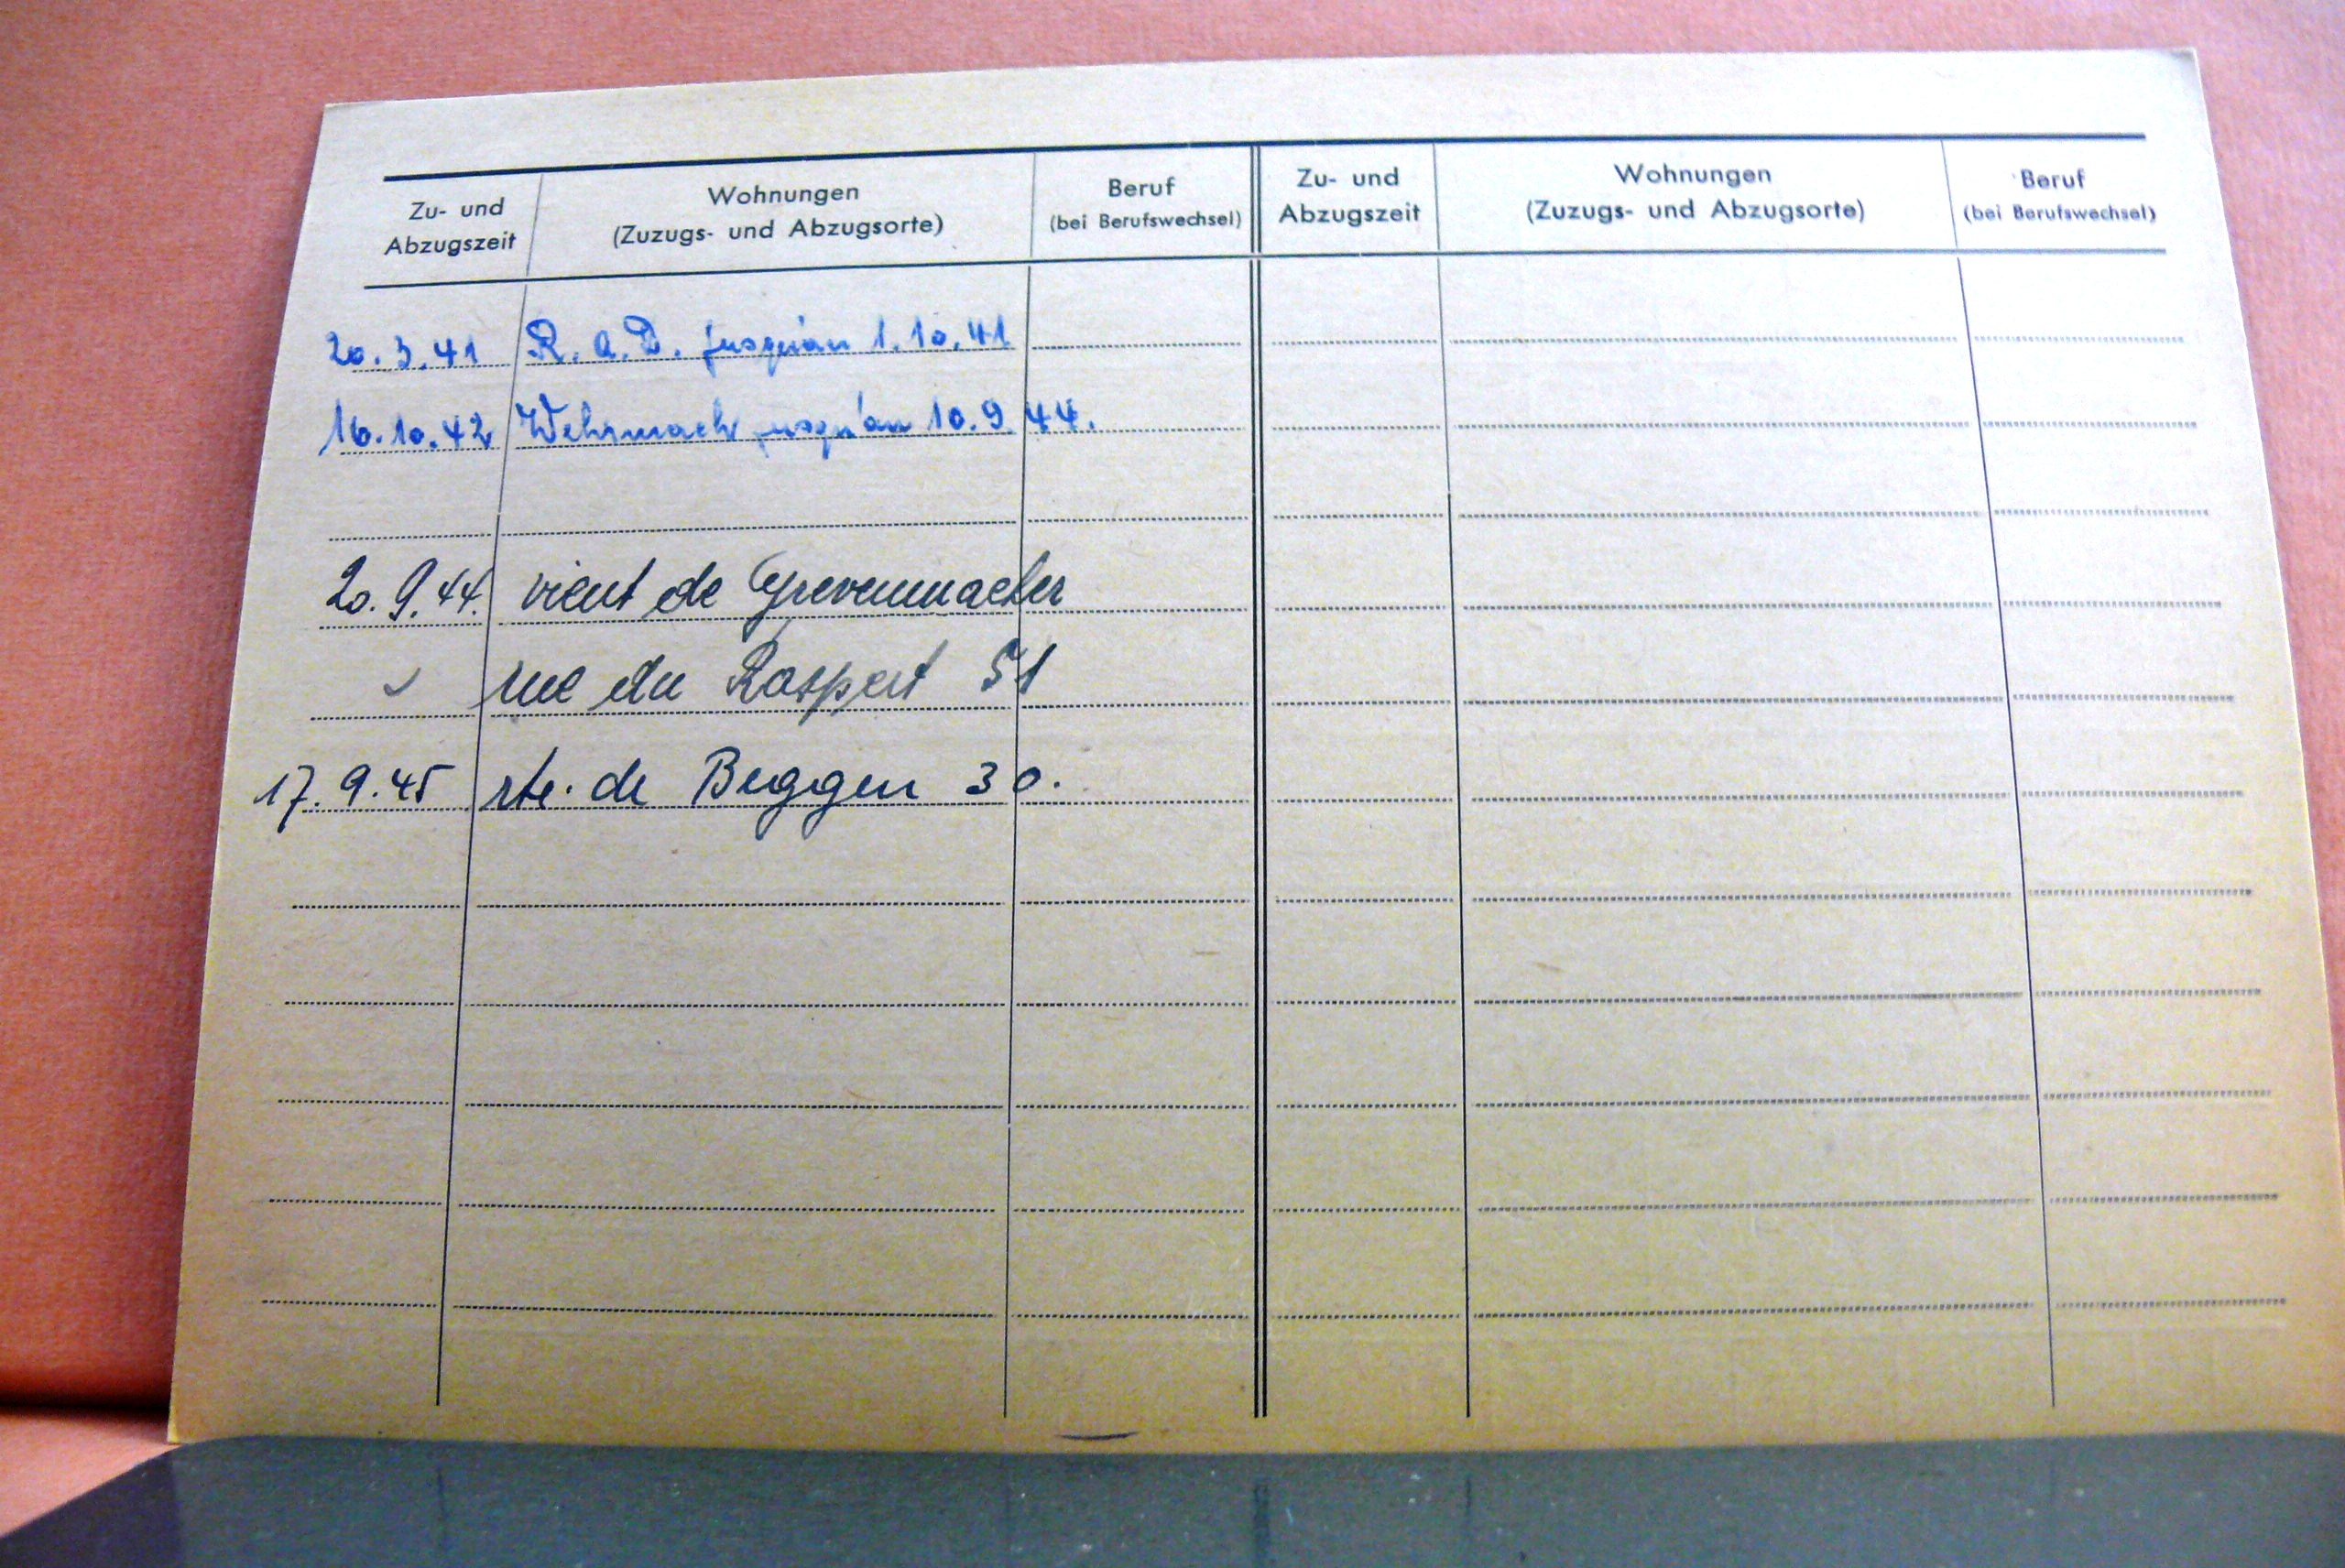 Zu- und Abzugszeit Wohnungen (Zuzugs- und Abzugsorte) Beruf (bei Berufswechsel) Zu- und Abzugszeit Wohnungen (Zuzugs- und Abzugsorte) Beruf (bei Berufswechsel)
20.3.41 R.A.D. jusqu'au 1.10.41
16.10.42 Wehrmach jusqu'au 10.9.44.
20.9.44. vient de Grevenmacher
rue du Rospert 51
17.9.45 rte. de Beggen 30.